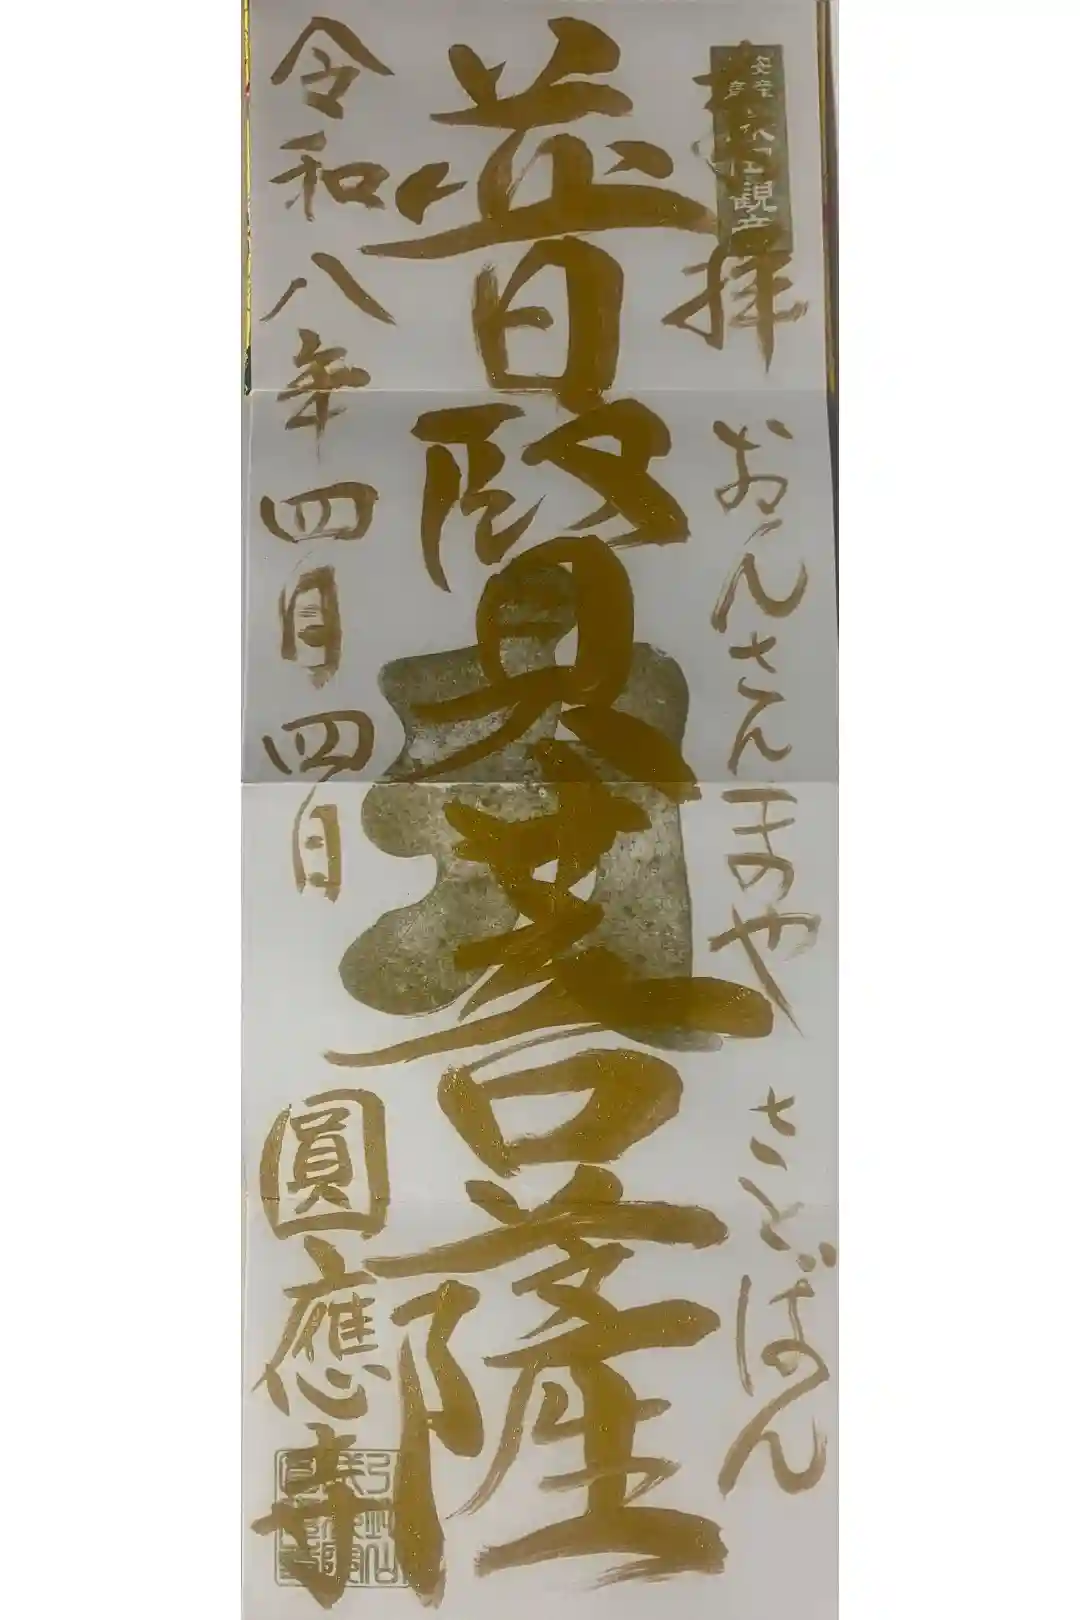 奉拝
おんさんまや
さとばん
普賢菩薩
令和八年四月四日
圓應寺